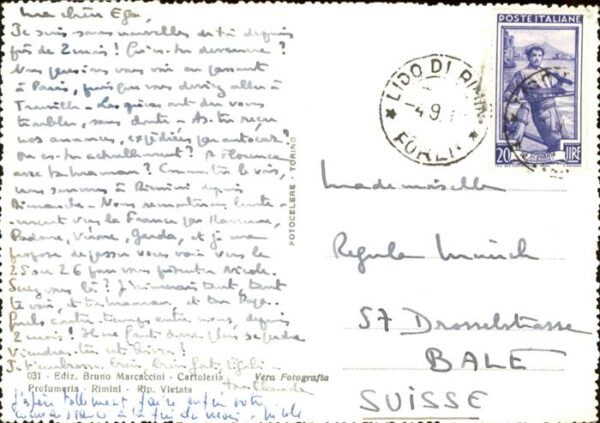 Ma chère Egli,
Je suis sans nouvelles de toi depuis
près de 2 mois ! Qu'es-tu devenue ?
Nous pensions vous voir en passant
à Paris, puisque vous deviez aller à
Trouville - Les grèves ont dû vous
troubler, sans doute - As-tu reçu
nos annonces, expédiées par autocar ?
Où es-tu actuellement ? A Florence
avec ta maman ? Comme tu le vois,
nous sommes à Rimini depuis
dimanche - Nous remonterons lente
ment vers la France par Ravenne,
Padoue, Vérone, Garda, et je me
propose de passer vous voir vers le
25 ou 26 pour vous présenter Nicole.
Serez-vous là ? J'aimerais tant, tant
te voir, et ta maman, et ton Papa.
Quel temps entre nous, depuis
2 mois ! Il ne faut plus se perdre
Je t'embrasse bien fort, Egli -
031 - Ediz. Bruno Marcaccini - Cartoleria Vera Fotografia
Profumeria - Rimini - Rip. Vietata
J'espère tellement faire enfin votre
à la fin du mois - Nicole
FOTOCELERE - TORINO
LIDO DI RIMINI
-4.9
FORLI
POSTE ITALIANE
20 LIRE
Mademoiselle
Regula
57 Drosselstrasse
BALE
SUISSE